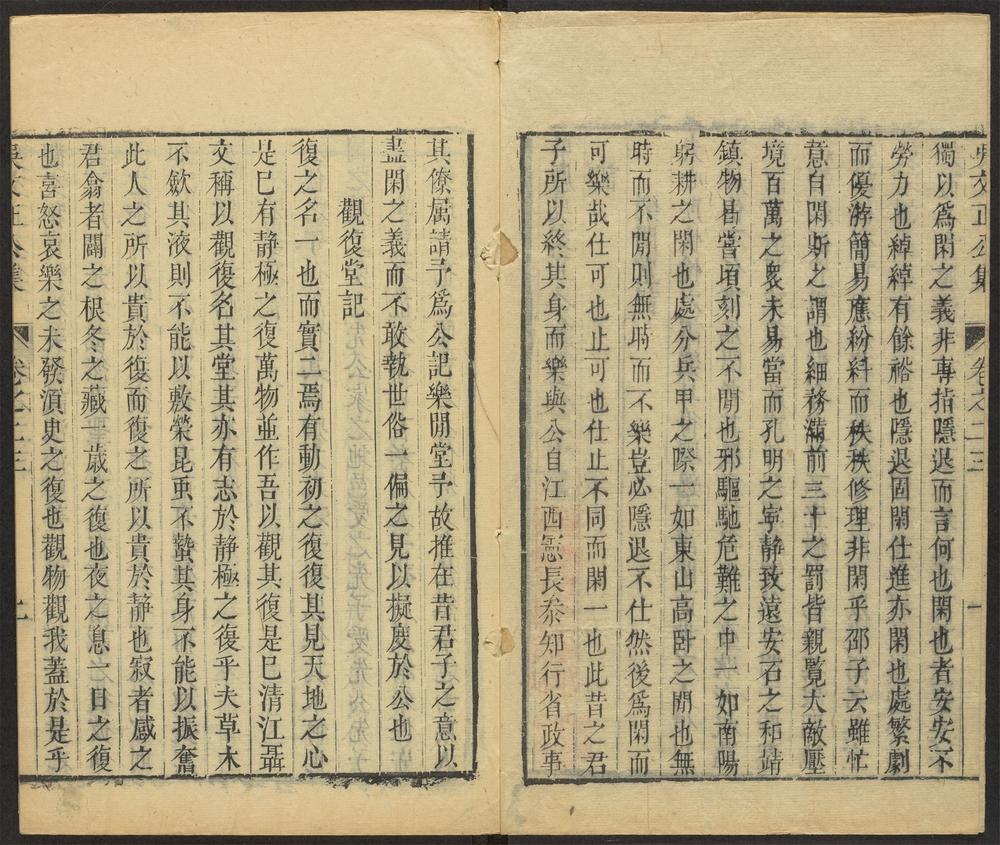 吳文正公集 卷之二三 一
獨以爲閑之義非專指隱退而言何也閑也者安安不
勞力也綽綽有餘裕也隱退固閑仕進亦閑也處繁劇
而優游簡易應紛糾而秩秩修理非閑乎邵子云雖忙
意自閑斯之謂也細務滿前三十之罰皆親覽大敵壓
境百萬之衆未易當而孔明之寧静致遠安石之和靖
鎮物曷嘗頃刻之不閒也邪驅馳危難之中一如南陽
躬耕之閑也處分兵甲之際一如東山高卧之閒也無
時而不閒則無時而不樂豈必隱退不仕然後爲閑而
可樂哉仕可也止可也仕止不同而閑一也此昔之君
子所以終其身而樂與公自江西憲長叅知行省政事
其僚属請予爲公記樂閒堂予故推在昔君子之意以
盡閑之義而不敢執世俗一偏之見以擬度於公也
觀復堂記
復之名一也而實二焉有動初之復復其見天地之心
是巳有静極之復萬物並作吾以觀其復是巳清江聶
文稱以觀復名其堂其亦有志於静極之復乎夫草木
不歛其液則不能以敷榮昆䖝不蟄其身不能以振奮
此人之所以貴於復而復之所以貴於静也寂者感之
君翕者闢之根冬之藏一歲之復也夜之息一日之復
也喜怒哀樂之未發湏史之復也觀物觀我蓋於是乎
吳文正公集 卷之二三